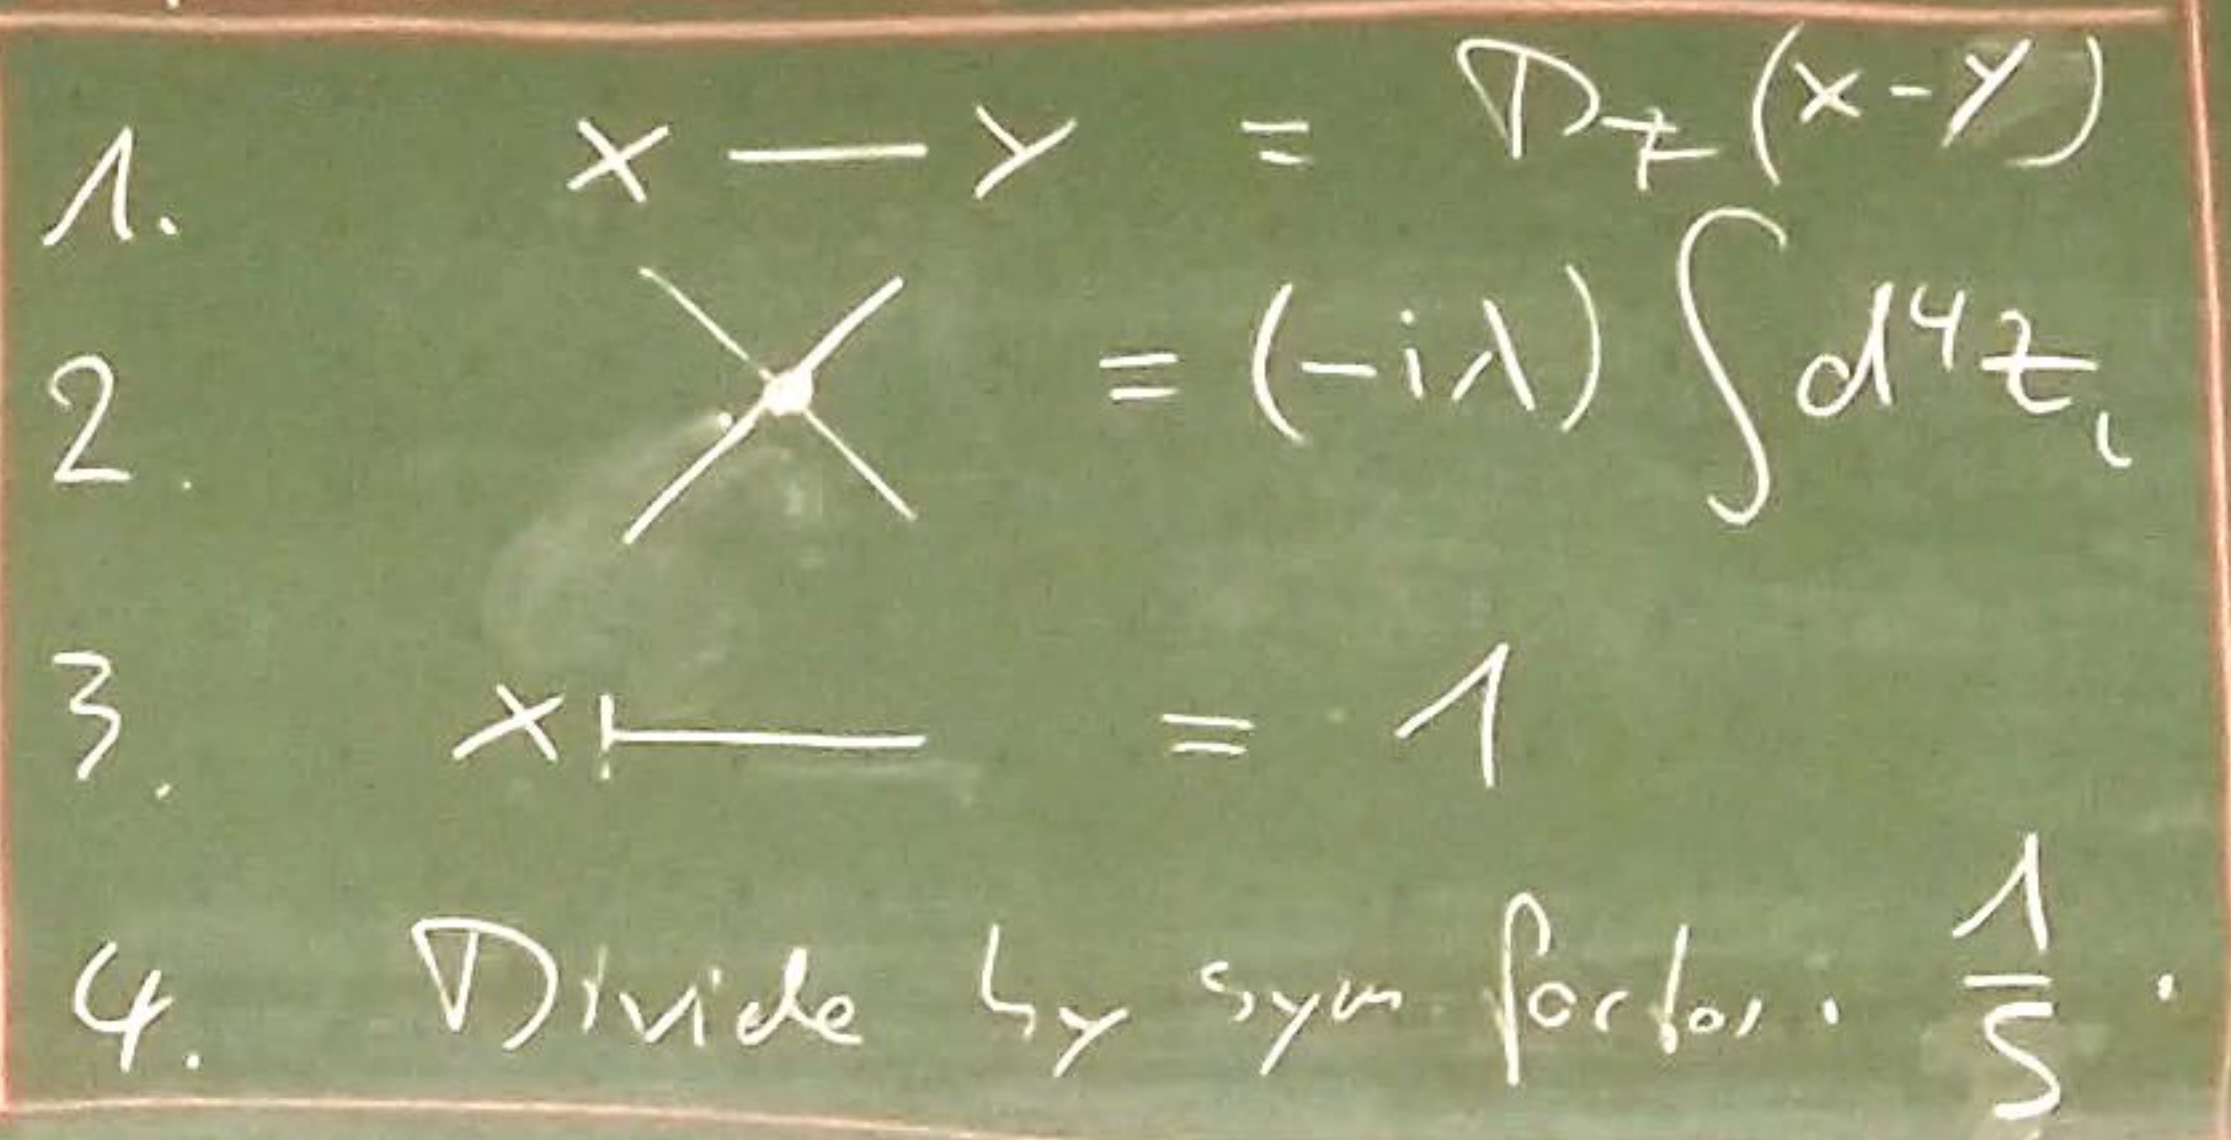 1. x — y = D_F (x-y)
2. = (-iλ) ∫ d⁴z,
3. x ⊢— = 1
4. Divide by sym. factor. 1/S .